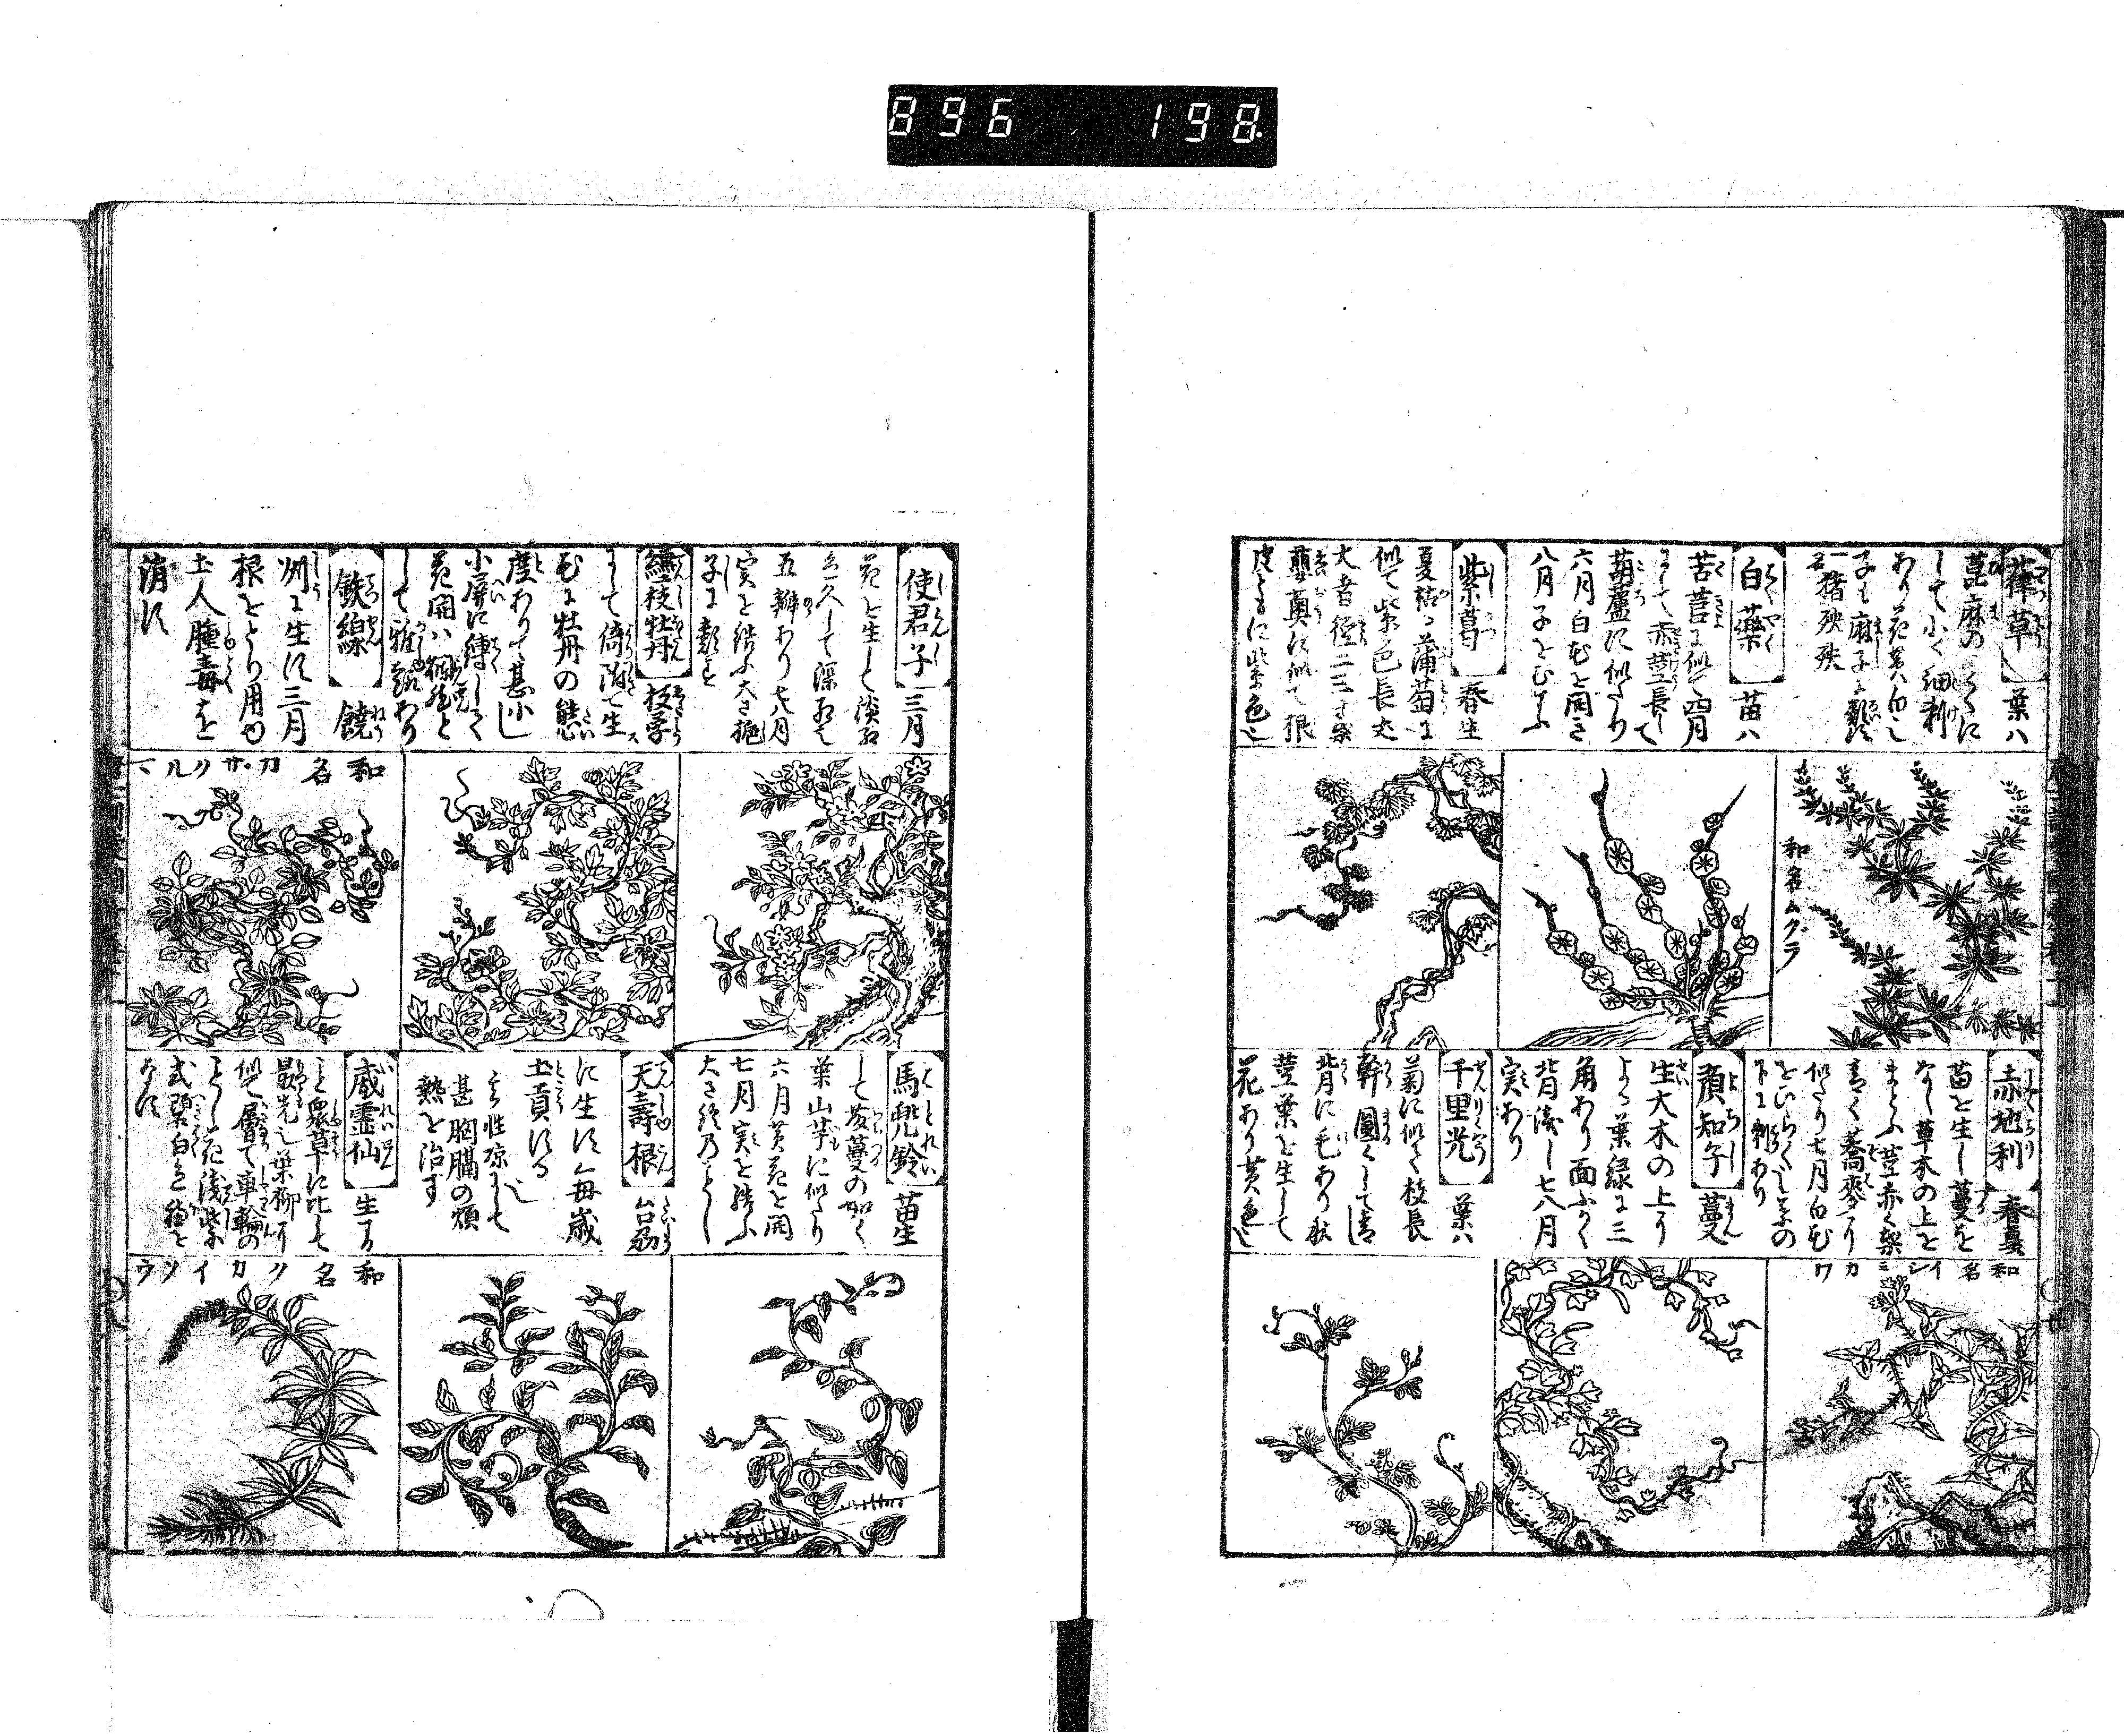 896 198
葎草 葉ハ
萆麻のごとくに
して小く細刺
あり花黄白し
子も麻子に類
一名猪殃殃
和名ムグラ
白藥 苗ハ
苦苣に似て四月
にして赤莖長して
葫蘆に似たり
六月白花を開き
八月子をむすぶ
紫葛 春生
夏枯る蒲萄に
似て紫色長丈
大者徑二三寸葉
蘡薁に似て根
皮ともに紫色也
赤地利 春夏
苗を生し蔓を
なし草木の上を
まとふ茎赤く葉
青く蕎麥より
似たり七月白花
をひらく
下に刺あり
和名イシミカワ
預知子 蔓
生大木の上り
よる葉緑に三
角あり面ふかく
背淺し七八月
実あり
千里光 葉ハ
菊に似て枝長
幹圓くして青
背に毛あり秋
莖葉を生して
花あり黄色也
使君子 三月
花を生し淡紅
久して深紅て
五瓣あり七八月
実を結ふ大さ梔
子に類を
纏枝牡丹 枝柔
にして倚附て生ス
花に牡丹の態
度ありて甚小し
小屏に縛して
花開ハ爛然と
して雅趣あり
鉄線 饒
州に生す三月
根をとり用ゆ
土人腫毒を
消す
和名カザクルマ
馬兜鈴 苗生
して藤蔓の如く
葉山芋に似たり
六月黄花を開
七月実を結ふ
大さ
天壽根 台州
に生す毎歳
土貢する
其性凉にして
甚胸膈の煩
熱を治す
威霊仙 生する
こと衆草に比して
最先し葉柳に
似て層て車輪の
ごとし花淺紫
或碧白色
なす
和名クカイソウ